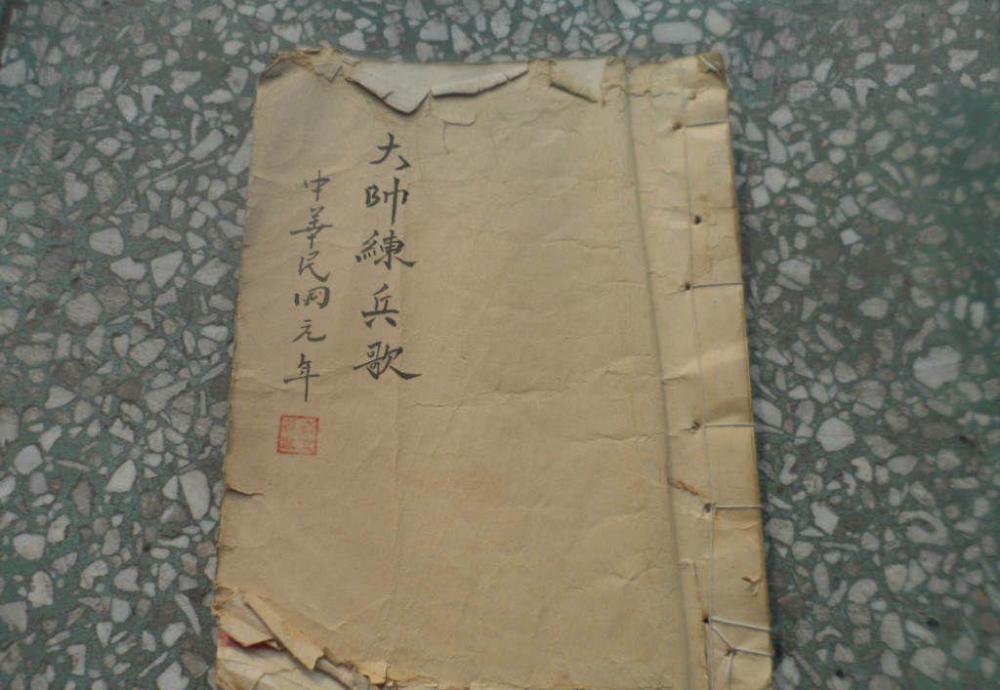 大帅練兵歌
中華民囯元年